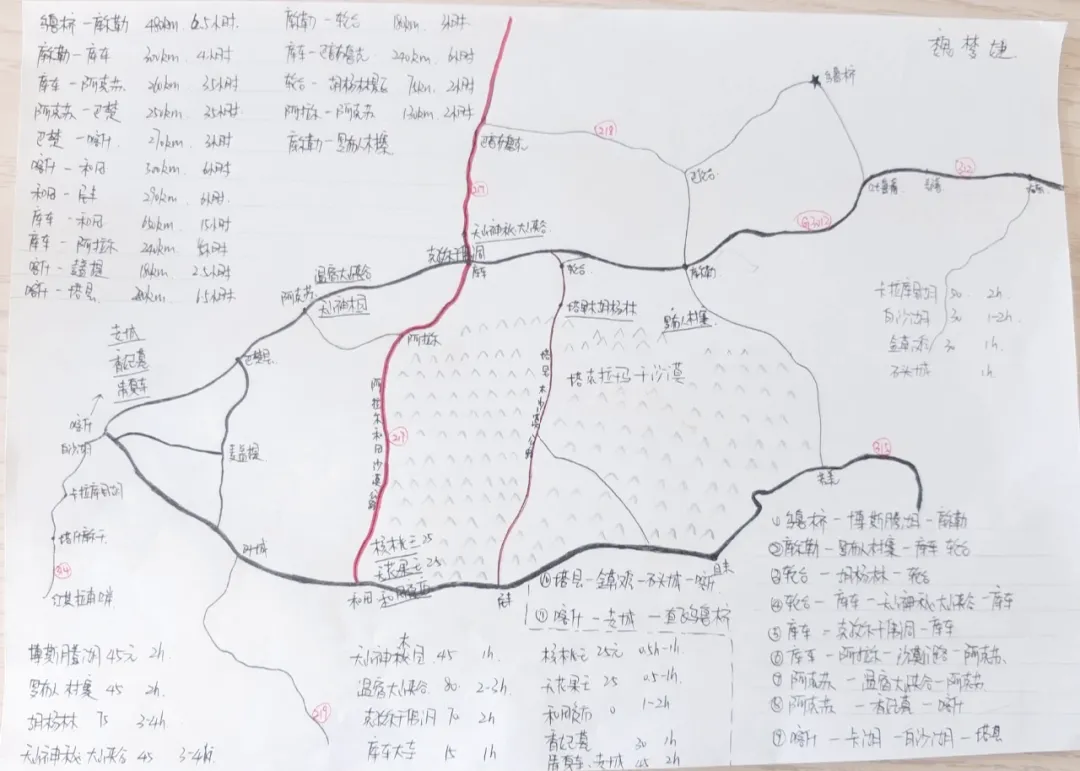 魏梦婕
乌鲁木齐-库尔勒 480km 6.5小时
库尔勒-库车 300km 4小时
库车-阿克苏 260km 3.5小时
阿克苏-巴楚 250km 3.5小时
巴楚-喀什 270km 3小时
喀什-和田 500km 6小时
和田-民丰 6小时
库车-和田 15小时
库车-阿拉尔 240km
喀什-麦盖提 180km 2.5小时
喀什-塔县 6.5小时
库尔勒-轮台 180km 3小时
库车-巴音布鲁克 240km 6小时
轮台-胡杨林景区 75km 2小时
阿拉尔-阿克苏 130km 2小时
库尔勒-罗布人村寨
218
巴音布鲁克
217
312
G3012
吐鲁番
天山神秘大峡谷
克孜尔千佛洞
库车
轮台
库尔勒
温宿大峡谷
阿克苏
天山神木园
塔里木胡杨林
罗布人村寨
阿拉尔
老城
香妃墓
清真寺
巴楚县
塔克拉玛干沙漠
阿拉尔和田沙漠公路
塔里木沙漠公路
217
喀什
白沙湖
麦盖提
315
卡拉库里湖
塔什库尔干
叶城
314
红其拉甫口岸
核桃王 25
无花果王 25
和田夜市
和田
民丰
且末
219
卡拉库里湖 50 2h
白沙湖 30 1-2h
金草滩 30 1h
石头城 1h
①乌鲁木齐-博斯腾湖-库尔勒
②库尔勒-罗布人村寨-库车 轮台
③轮台-胡杨林-轮台
④轮台-库车-天山神秘大峡谷-库车
⑤库车-克孜尔千佛洞-库车
⑥库车-阿拉尔-沙漠公路-阿克苏
⑦阿克苏-温宿大峡谷-阿克苏
⑧阿克苏-香妃墓-喀什
⑨喀什-卡湖-白沙湖-塔县
⑩塔县-金草滩-石头城-喀什
⑪喀什-老城-直飞乌鲁木齐
博斯腾湖 45元 2h
罗布人村寨 45 2h
胡杨林 75 3-4h
天山神秘大峡谷 45 3-4h
天山神木园 45 1h
温宿大峡谷 80 2-3h
克孜尔千佛洞 70 2h
库车大寺 15 1h
核桃王 25元 0.5h-1h
无花果王 25 0.5-1h
和田夜市 0 1-2h
香妃墓 30 1h
清真寺、老城 45 2h